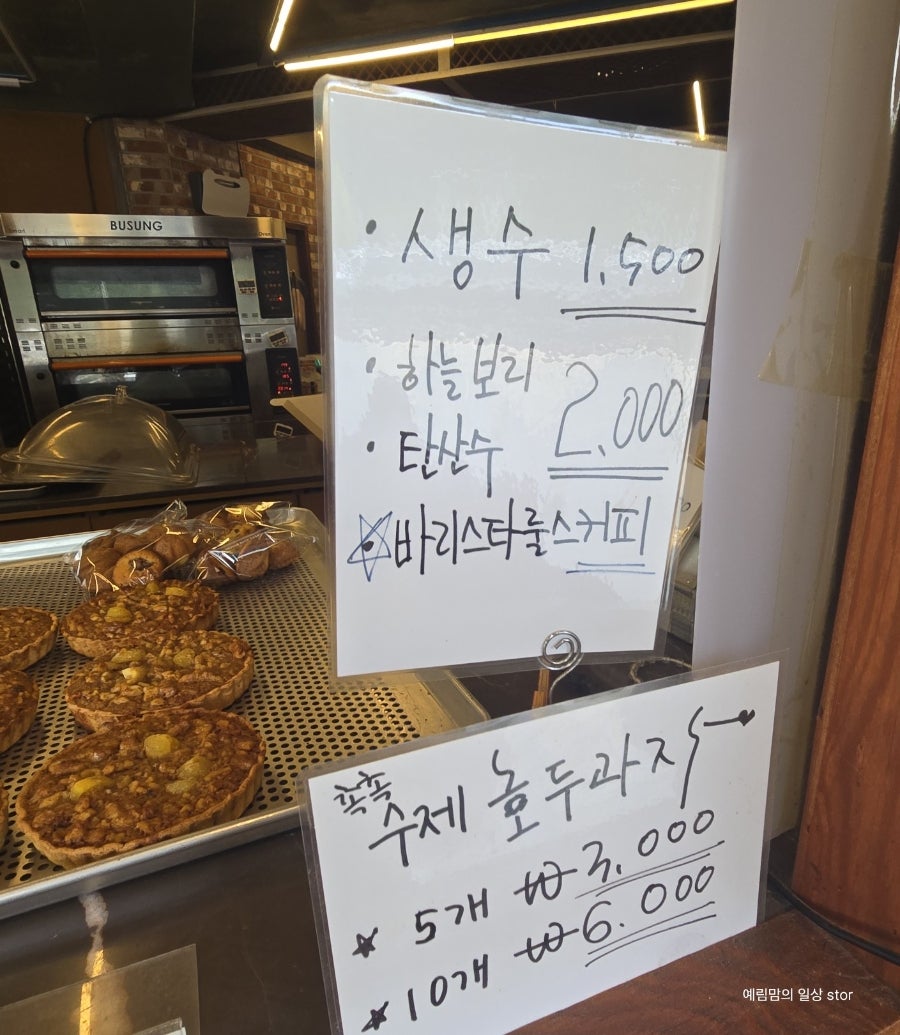 BUSUNG
• 생수 1,500
• 하늘보리
2,000
• 탄산수
바리스타룰스커피
촉촉
수제 호두과자
★ 5개 ₩3,000
★ 10개 ₩6,000
예림맘의 일상 stor